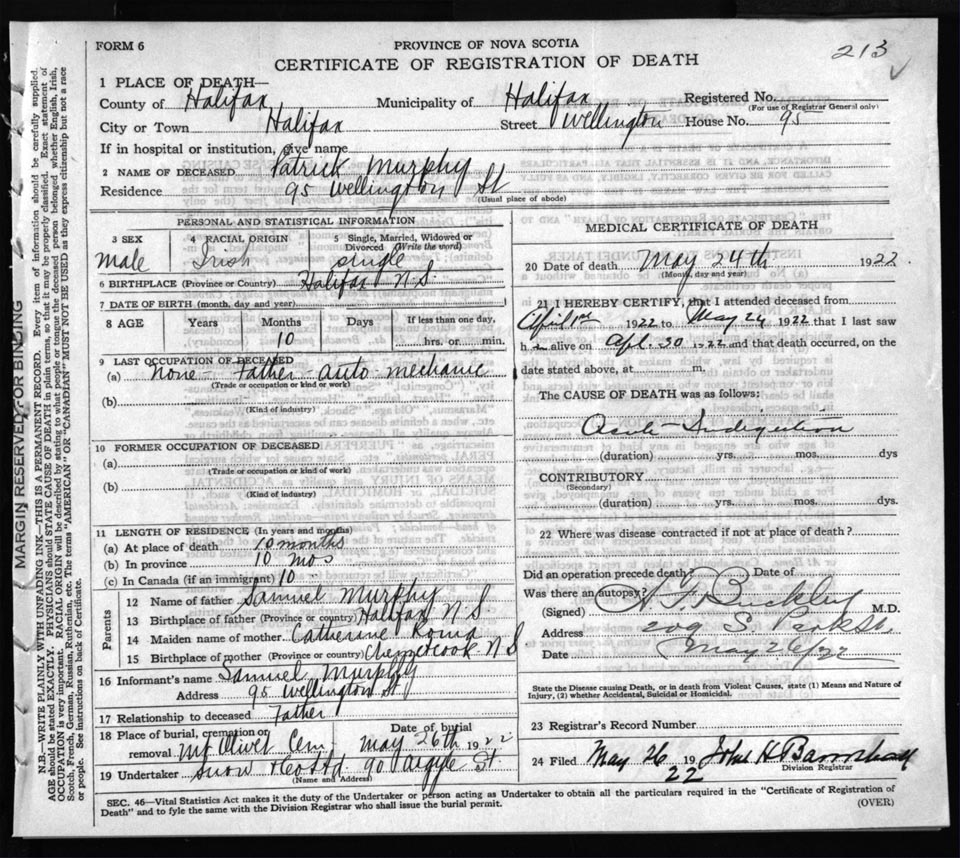 FORM 6
PROVINCE OF NOVA SCOTIA
213
CERTIFICATE OF REGISTRATION OF DEATH
1 PLACE OF DEATH—
County of Halifax Municipality of Halifax Registered No.
(For use of Registrar General only)
City or Town Halifax Street Wellington House No. 95
If in hospital or institution, give name
2 NAME OF DECEASED Patrick Murphy
Residence 95 Wellington St
(Usual place of abode)
PERSONAL AND STATISTICAL INFORMATION
3 SEX 4 RACIAL ORIGIN 5 Single, Married, Widowed or Divorced (Write the word)
Male Irish Single
6 BIRTHPLACE (Province or Country) Halifax N.S
7 DATE OF BIRTH (month, day and year)
8 AGE Years Months Days If less than one day,
10 hrs. or min.
9 LAST OCCUPATION OF DECEASED
(a) None - Father auto mechanic
(Trade or occupation or kind or work)
(b)
(Kind of industry)
10 FORMER OCCUPATION OF DECEASED
(a)
(Trade or occupation or kind or work)
(b)
(Kind of industry)
11 LENGTH OF RESIDENCE (In years and months)
(a) At place of death 10 months
(b) In province 10 mos
(c) In Canada (if an immigrant) 10
Parents
12 Name of father Samuel Murphy
13 Birthplace of father (Province or country) Halifax N S
14 Maiden name of mother Catherine
15 Birthplace of mother (Province or country) Chezzetcook N S
16 Informant's name Samuel Murphy
Address 95 Wellington St
17 Relationship to deceased Father
18 Place of burial, cremation or removal Mt Olivet Cem
Date of burial May 26th 1922
19 Undertaker Snow & Co Ltd 90 Argyle St.
(Name and Address)
MEDICAL CERTIFICATE OF DEATH
20 Date of death May 24th 1922
(Month, day and year)
21 I HEREBY CERTIFY, that I attended deceased from
April 1st 1922 to May 24 1922 that I last saw
h m alive on Apl. 30 1922 and that death occurred, on the
date stated above, at m.
The CAUSE OF DEATH was as follows:
Acute Indigestion
(duration) yrs. mos. dys
CONTRIBUTORY
(Secondary)
(duration) yrs. mos. dys.
22 Where was disease contracted if not at place of death?
Did an operation precede death? Date of
Was there an autopsy?
(Signed) Buckley M.D.
Address 209 S. Park St.
Date May 26/22
State the Disease causing Death, or in death from Violent Causes, state (1) Means and Nature of Injury, (2) whether Accidental, Suicidal or Homicidal.
23 Registrar's Record Number
24 Filed May 26 19 22 John H
Division Registrar
SEC. 46—Vital Statistics Act makes it the duty of the Undertaker or person acting as Undertaker to obtain all the particulars required in the "Certificate of Registration of
Death" and to fyle the same with the Division Registrar who shall issue the burial permit.
(OVER)
MARGIN RESERVED FOR BINDING
N.B.—WRITE PLAINLY WITH UNFADING INK—THIS IS A PERMANENT RECORD. Every item of information should be carefully supplied.
AGE should be stated EXACTLY. PHYSICIANS should STATE CAUSE OF DEATH in plain terms, so that it may be properly classified. Exact statement of
OCCUPATION is very important. RACIAL ORIGIN will be described by stating to what people or tongue the deceased person belonged whether English, Irish,
Scotch, French, German, Russian, Ruthenian, etc. The terms "AMERICAN" OR "CANADIAN" MUST NOT BE USED as they express citizenship but not a race
or people. See instructions on back of Certificate.